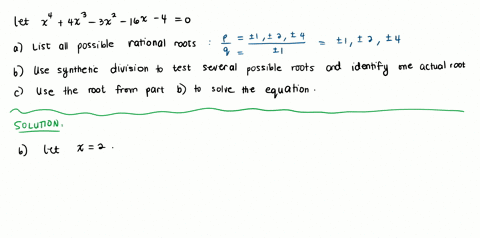 let x⁴ + 4x³ - 3x² - 16x - 4 = 0
a) List all possible rational roots : p/q = ±1, ±2, ±4 / ±1 = ±1, ±2, ±4
b) Use synthetic division to test several possible roots and identify one actual root
c) Use the root from part b) to solve the equation.
SOLUTION.
b) let x = 2.